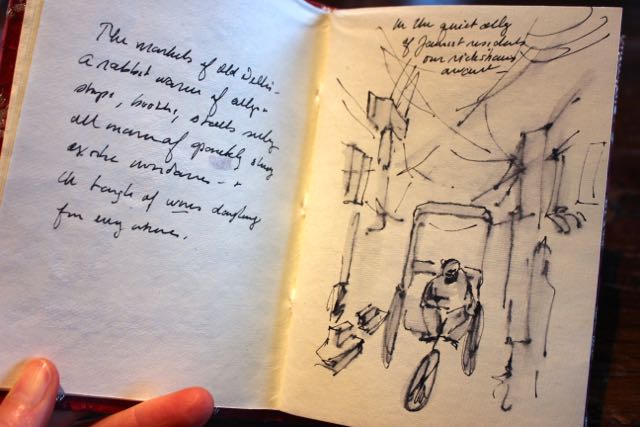 The markets of Old Delhi -
A rabbit warren of alleys
shops, booths, stalls selling
all manner of sparkly shiny
exotic
the tangle of wires dangling
from everywhere.
In the quiet alley
of Jainist residents
our rickshaws
await -